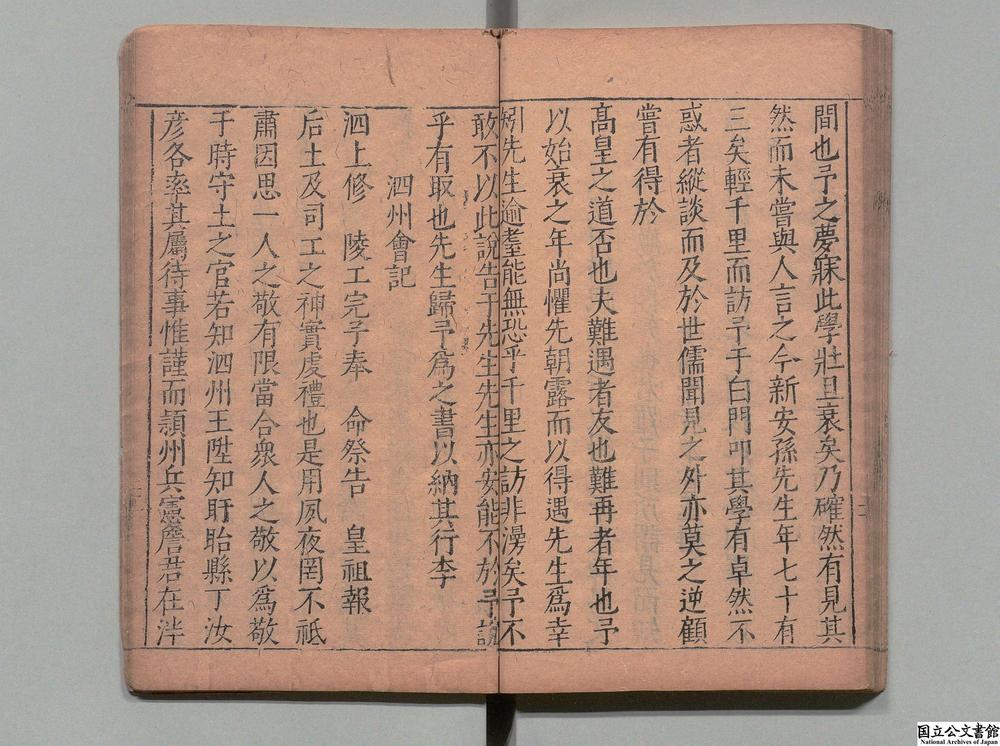 間也予之夢寐此學壯且衰矣乃確然有見其
然而未嘗與人言之今新安孫先生年七十有
三矣輕千里而訪予于白門叩其學有卓然不
惑者縱談而及於世儒聞見之外亦莫之逆顧
嘗有得於
髙皇之道否也夫難遇者友也難再者年也予
以始衰之年尚懼先朝露而以得遇先生爲幸
矧先生逾耋能無恐乎千里之訪非漫矣予不
敢不以此說告于先生先生亦安能不於予說
乎有取也先生歸予爲之書以納其行李
泗州會記
泗上修 陵工完予奉 命祭告 皇祖報
后土及司工之神實虔禮也是用夙夜罔不祗
肅因思一人之敬有限當合衆人之敬以爲敬
于時守土之官若知泗州王陞知盱眙縣丁汝
彦各率其屬待事惟謹而頴州兵憲詹君在泮
国立公文書館
National Archives of Japan